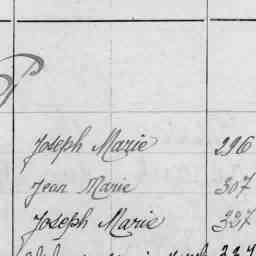 P
Joseph Marie 296
Jean Marie 307
Joseph Marie 327